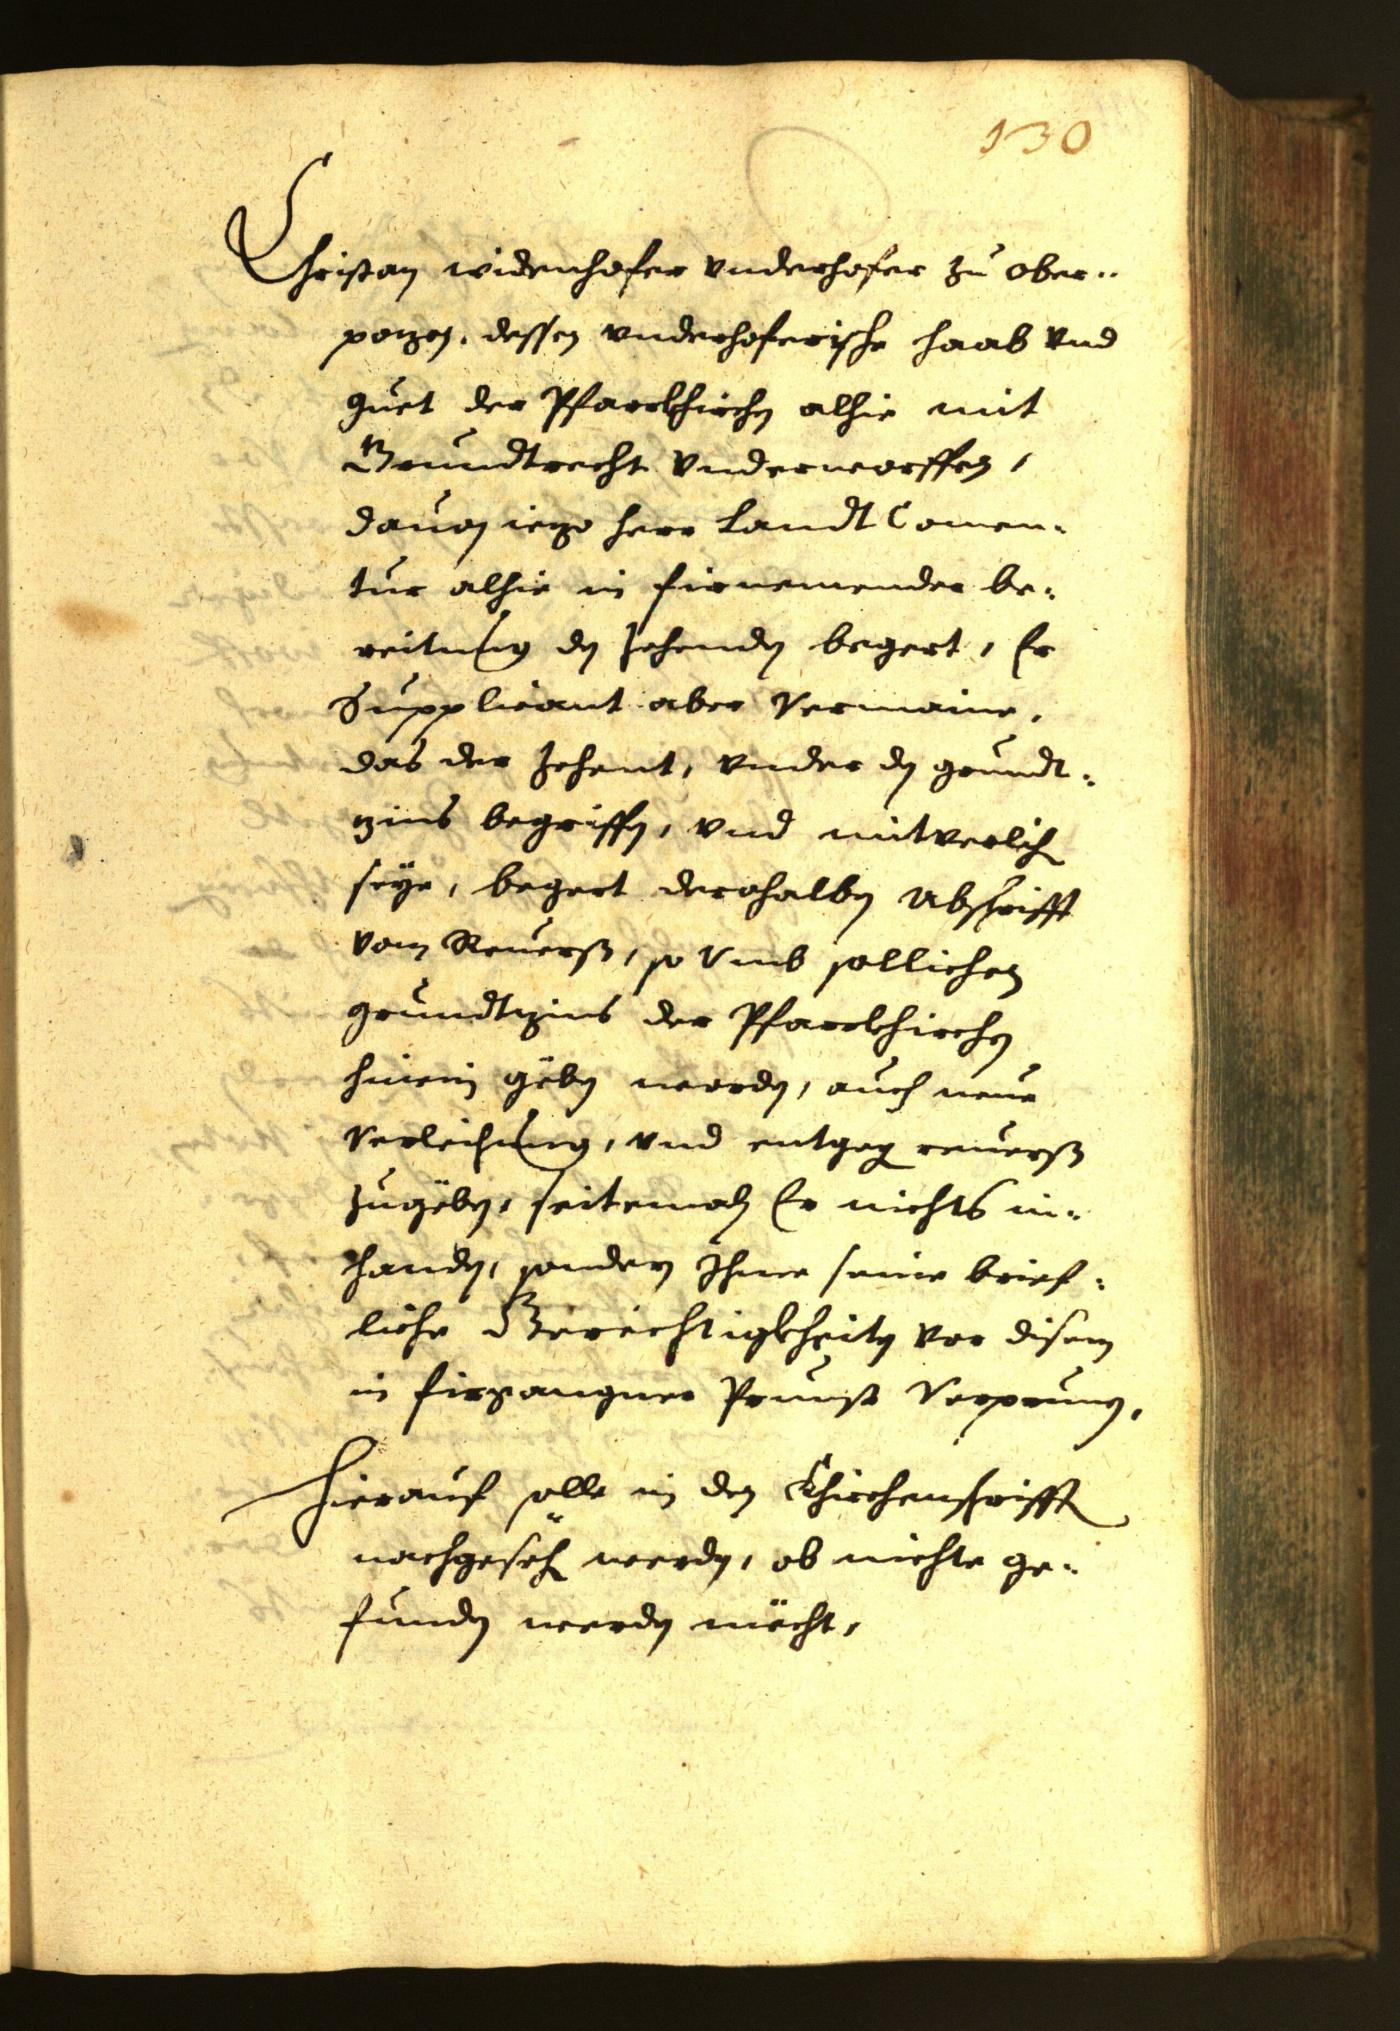 130
Christan widenhofer vnderhofer zu ober¬
pozen, dessen vnderhoferische haab vnd
guet der Pfarrkhirchen alhie mit
Grundtrecht vnderworffen,
dauon iezo herr Landt Comen¬
tur alhie in firnemender be¬
reitung den zehenden begert, Er
Supplicant aber vermaine,
das der zehent, vnder den grundt¬
zins begriffen, vnd mitverlichen
seÿe, begert derohalben Abschrifft
vom Reuerß, so vmb sollichen
grundtzins der Pfarrkhirchen
hinein geben worden, auch neue
verleichung, vnd entgegen reuerß
zugeben, seitemaln Er nichts in¬
handen, sondern Ihme seine brief¬
liche Gerechtigkheiten vor disem
in firgangner Prunst verprunen,
Hierauf solle in den Khirchenschrifften
nachgesechen werden, ob nichts ge¬
funden werden mächt,